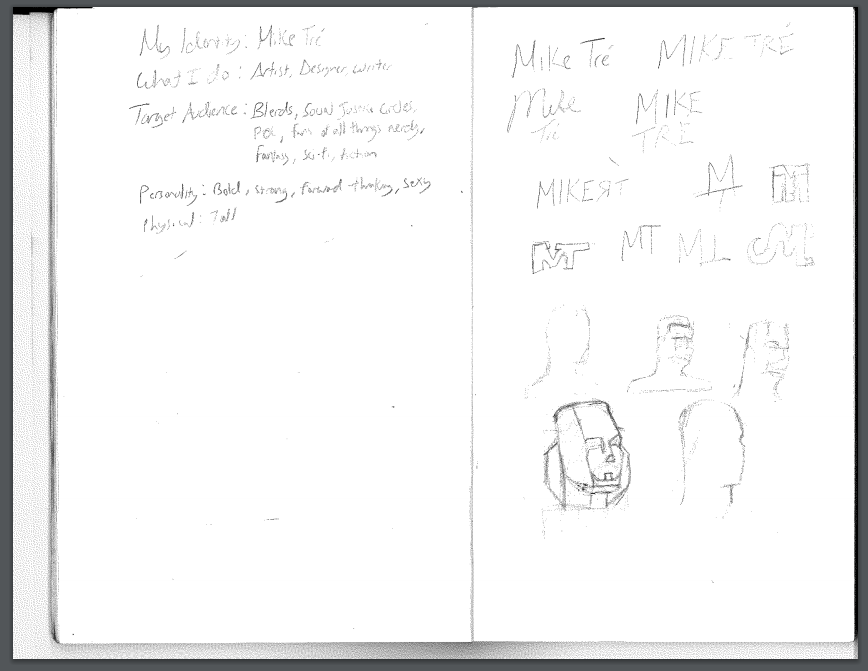 My Identity: Mike Tré
What I do: Artist, Designer, writer
Target Audience: Blerds, Social Justice Circles,
POC, fans of all things nerdy,
fantasy, sci-fi, Action
Personality: Bold, strong, forward-thinking, sexy
Physical: Tall
Mike Tré MIKE TRÉ
Mike MIKE
Tré TRÉ
MIKEЯT M
T
MT MT